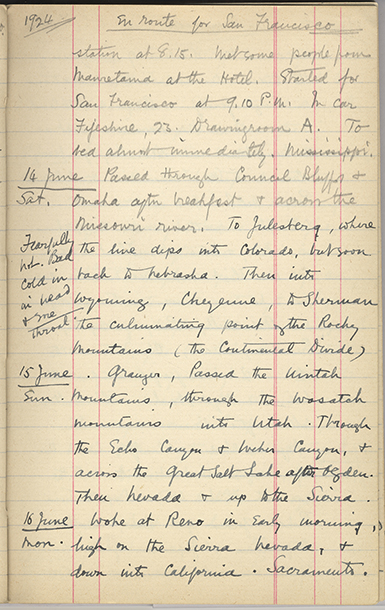 1924 En route for San Francisco
station at 8.15. Met some people from
Mauretania at the Hotel. Started for
San Francisco at 9.10 P.M. In car
Fifeshire, 23. Drawingroom A. To
bed almost immediately. Mississippi.
14 June Passed through Council Bluffs &
Sat. Omaha after breakfast & across the
Missouri river. To Julesberg, where
Fearfully hot. Bad cold in head & sore throat
the line dips into Colorado, but soon
back to Nebraska. Then into
Wyoming, Cheyenne, to Sherman
the culminating point of the Rocky
Mountains (the Continental Divide)
15 June. Granger, Passed the Uintah
Sun. Mountains, through the Wasatch
mountains into Utah. Through
the Echo Canyon & Weber Canyon, &
across the Great Salt Lake after Ogden.
Then Nevada & up to the Sierra.
16 June Woke at Reno in Early morning,
Mon. high on the Sierra Nevada, &
down into California. Sacramento.